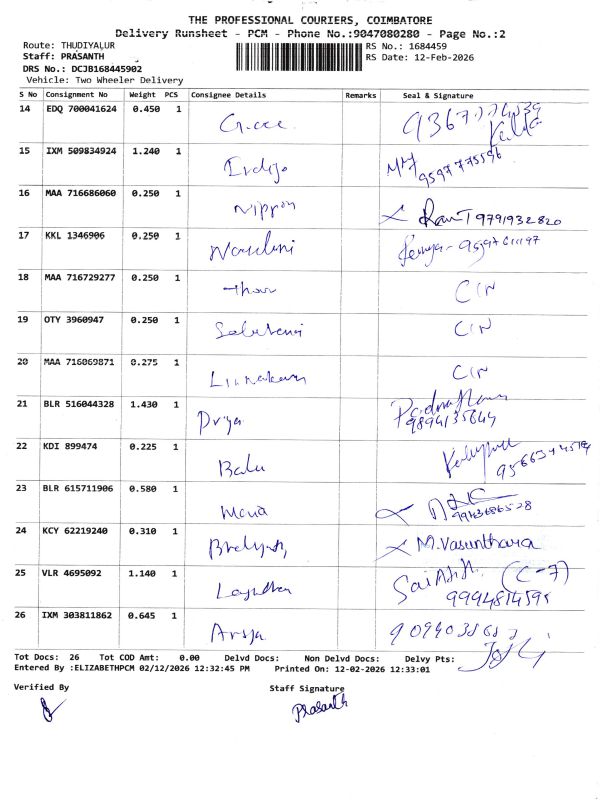 THE PROFESSIONAL COURIERS, COIMBATORE
Delivery Runsheet - PCM - Phone No.:9047080280 - Page No.:2
Route: THUDIYALUR
Staff: PRASANTH
DRS No.: DCJB168445902
Vehicle: Two Wheeler Delivery
RS No.: 1684459
RS Date: 12-Feb-2026
S No Consignment No Weight PCS Consignee Details Remarks Seal & Signature
14 EDQ 700041624 0.450 1 Grace
15 IXM 509834924 1.240 1 9597775596
16 MAA 716686060 0.250 1 Nippon Ravi T 9791932820
17 KKL 1346906 0.250 1
18 MAA 716729277 0.250 1 CIN
19 OTY 3960947 0.250 1 CIN
20 MAA 716069871 0.275 1 CIN
21 BLR 516044328 1.430 1 Priya 9894135644
22 KDI 899474 0.225 1 Balu
23 BLR 615711906 0.580 1 Mona 9943686528
24 KCY 62219240 0.310 1 M.Vasunthara
25 VLR 4695092 1.140 1 (C-7)
26 IXM 303811862 0.645 1
Tot Docs: 26 Tot COD Amt: 0.00 Delvd Docs: Non Delvd Docs: Delvy Pts:
Entered By :ELIZABETHPCM 02/12/2026 12:32:45 PM Printed On: 12-02-2026 12:33:01
Verified By
Staff Signature
Prasanth